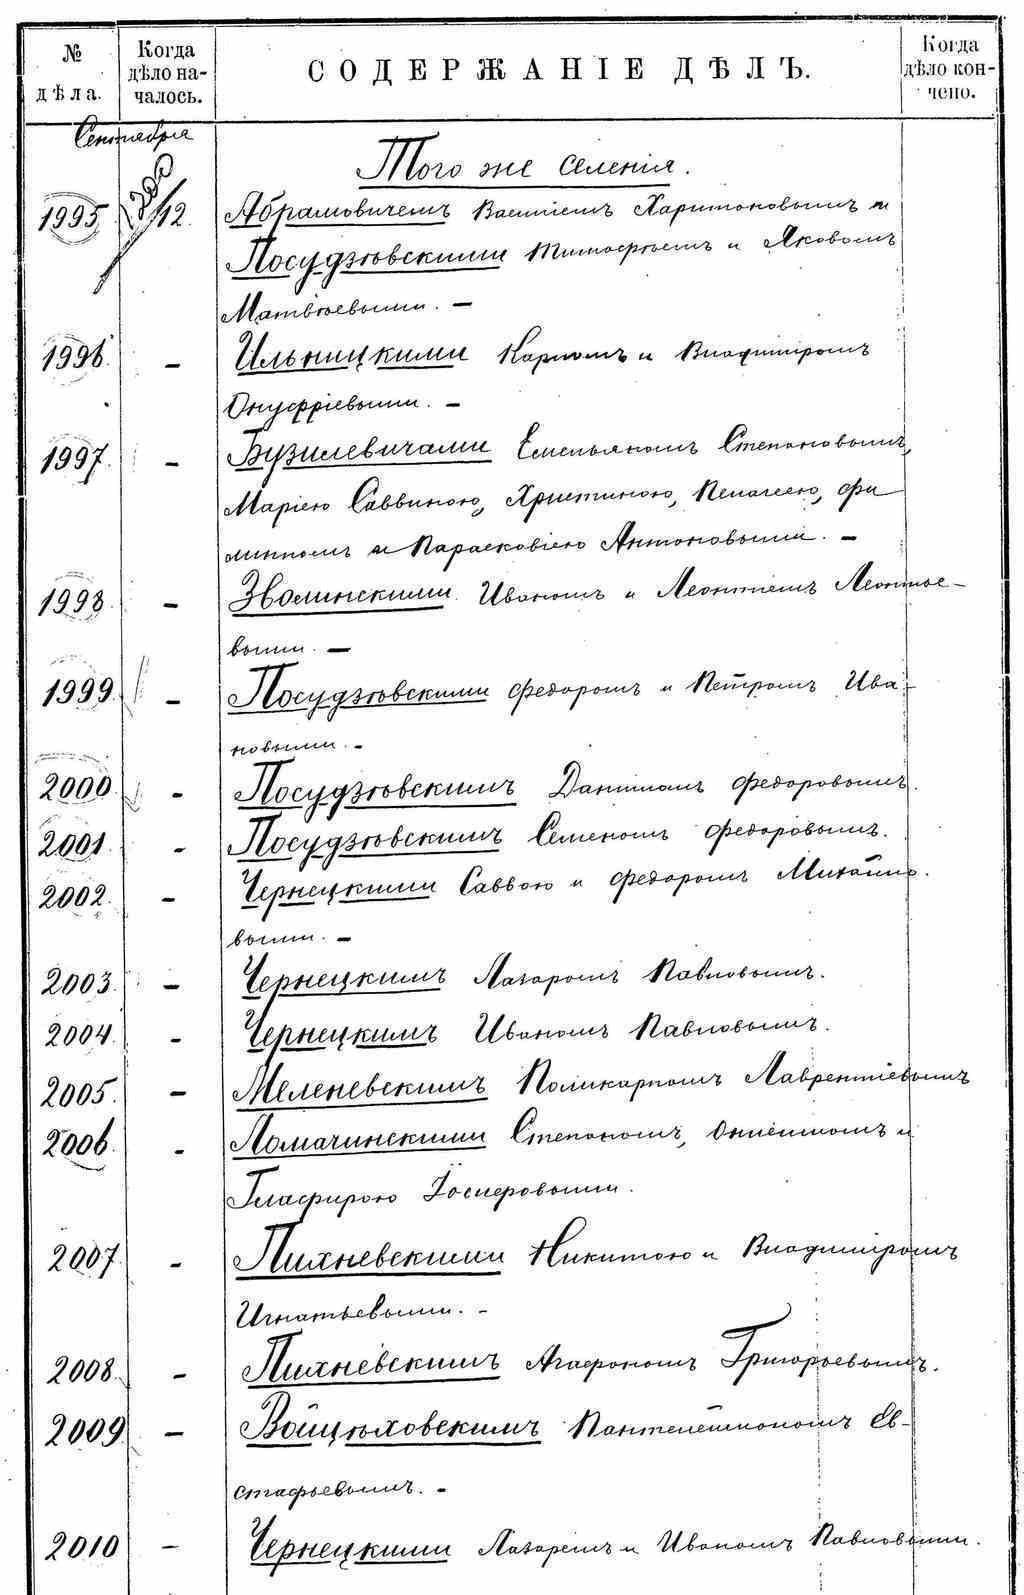 № дѣла.
Когда дѣло началось.
СОДЕРЖАНІЕ ДѢЛЪ.
Когда дѣло кончено.
Сентября
Того же селенія.
1995 12. Абрамовичемъ Василіемъ Харитоновымъ и
Посудзѣвскими Тимофѣемъ и Яковомъ
Матвѣевыми. —
1996. — Ильницкими Карпомъ и Владиміромъ
Онуфріевыми. —
1997. — Бузилевичами Емельяномъ Степановымъ,
Маріею Саввиною, Христиною, Пелагеею, Фи
липпомъ и Парасковіею Антоновыми. —
1998. — Зволинскими Иваномъ и Леонтіемъ Леонтье-
выми. —
1999. — Посудзѣвскими Федоромъ и Петромъ Ива-
новыми. —
2000. — Посудзѣвскимъ Даніиломъ Федоровымъ.
2001. — Посудзѣвскимъ Семеномъ Федоровымъ.
2002. — Чернецкими Саввою и Федоромъ Михайло-
выми. —
2003. — Чернецкимъ Лазаромъ Павловымъ.
2004. — Чернецкимъ Иваномъ Павловымъ.
2005. — Меленевскимъ Поликарпомъ Лаврентіевымъ
2006. — Ломачинскими Степаномъ, и
Глафирою Іосифовыми.
2007. — Пихневскими Никитою и Владиміромъ
Игнатьевыми. —
2008. — Пихневскимъ Агафономъ Григорьевымъ.
2009 — Войцѣховскимъ Пантелеймономъ Ев-
стафьевымъ. —
2010 — Чернецкими Лазаремъ и Иваномъ Павловыми.